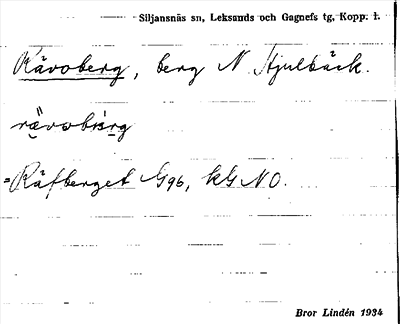 Siljansnäs sn, Leksands och Gagnefs tg, Kopp. l.
Rävoberg, berg N Hjulbäck.
rä̀vobærg
=Räfberget Ggb, kG NO.
Bror Lindén 1934